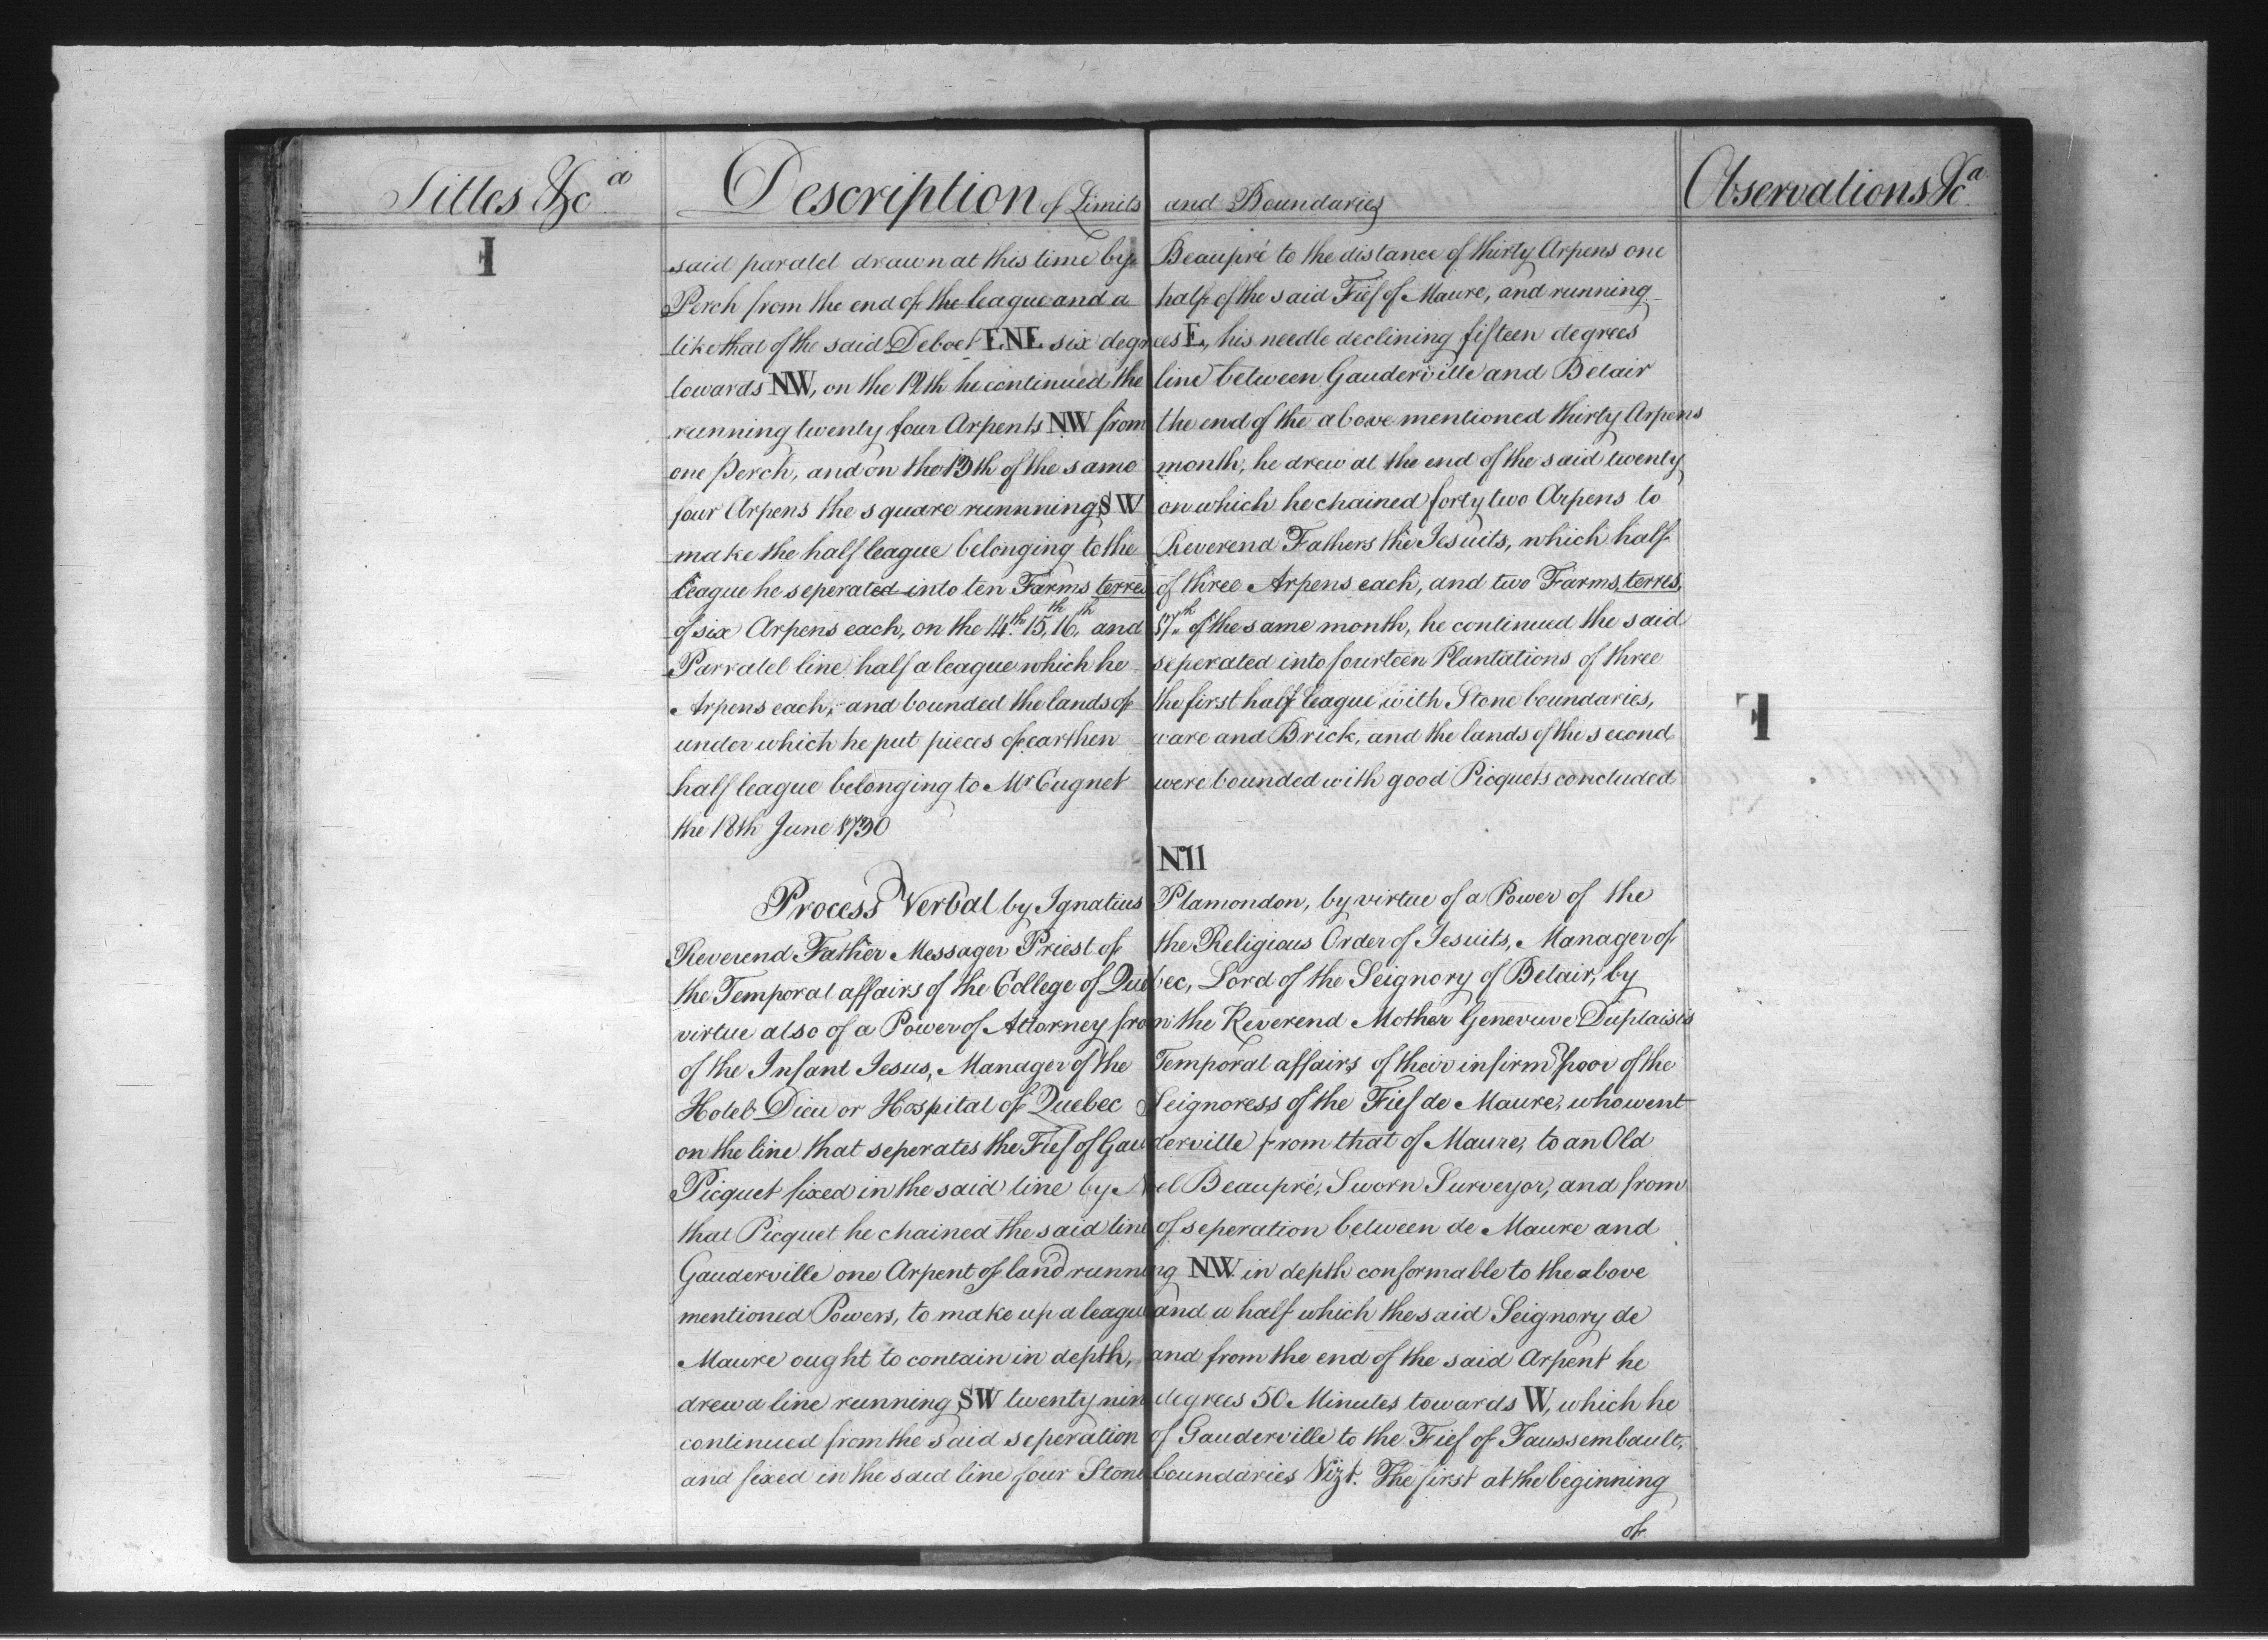 Titles &ca
Description of Limits and Boundaries
Observations &ca
said paralel drawn at this time by Beaupré to the distance of thirty Arpens one
Perch from the end of the league and a half of the said Fief of Maure, and running
like that of the said Deboet ENE six degrees E, his needle declining fifteen degrees
towards NW, on the 12th he continued the line between Gauderville and Belair
running twenty four Arpents NW from the end of the above mentioned thirty Arpens
one Perch, and on the 13th of the same month, he drew at the end of the said twenty
four Arpens the square runnning SW on which he chained forty two Arpens to
make the half league belonging to the Reverend Fathers the Jesuits, which half
league he seperated into ten Farms terres of three Arpens each, and two Farms, terres,
of six Arpens each, on the 14th. 15,th 16,th and 17th of the same month, he continued the said
Parralel line half a league which he seperated into fourteen Plantations of three
Arpens each, and bounded the lands of the first half league with Stone boundaries,
under which he put pieces of earthen ware and Brick, and the lands of the second
half league belonging to Mr Cugnet were bounded with good Picquets concluded
the 18th June 1730
No11
Process Verbal by Ignatius Plamondon, by virtue of a Power of the
Reverend Father Messager Priest of the Religious Order of Jesuits, Manager of
the Temporal affairs of the College of Quebec, Lord of the Seignory of Belair, by
virtue also of a Power of Attorney from the Reverend Mother Genevieve Duplaisis
of the Infant Jesus, Manager of the Temporal affairs of their infirm Poor of the
Hotel Dieu or Hospital of Quebec Seignoress of the Fief de Maure, who went
on the line that seperates the Fief of Gauderville from that of Maure, to an Old
Picquet fixed in the said line by Noel Beaupré, Sworn Surveyor, and from
that Picquet he chained the said line of seperation between de Maure and
Gauderville one Arpent of land running NW. in depth conformable to the above
mentioned Powers, to make up a league and a half which the said Seignory de
Maure ought to contain in depth, and from the end of the said Arpent he
drew a line running SW twenty nine degrees 50 Minutes towards W, which he
continued from the said seperation of Gauderville to the Fief of Faussembault,
and fixed in the said line four Stone boundaries Vizt. The first at the beginning
of